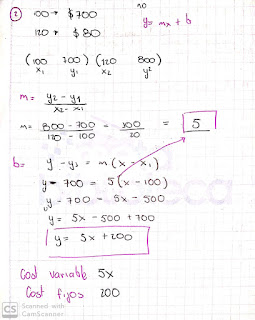 2 100 → $700
120 → $80
no
y= mx + b
(100 700) (120 800)
x₁ y₁ x₂ y₂
m= y₂ - y₁ / x₂ - x₁
m= 800 - 700 / 120 - 100 = 100 / 20 = 5
b= y - y₁ = m(x - x₁)
y - 700 = 5(x - 100)
y - 700 = 5x - 500
y = 5x - 500 + 700
y = 5x + 200
Cost variable 5x
Cost fijos 200
CS Scanned with
CamScanner